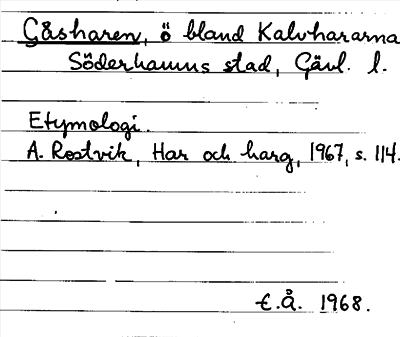 Gåsharen, ö bland Kalvhararna
Söderhamns stad, Gävl. l.
Etymologi.
A. Rostvik, Har och harg, 1967, s. 114.
E.Å. 1968.